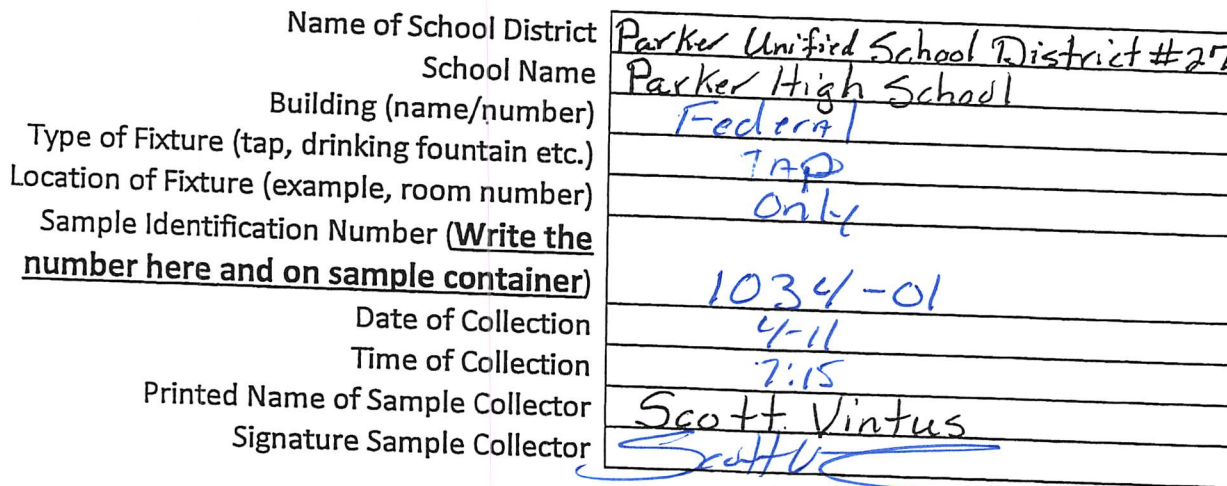 Name of School District Parker Unified School District #27
School Name Parker High School
Building (name/number) Federal
Type of Fixture (tap, drinking fountain etc.) TAP
Location of Fixture (example, room number) Only
Sample Identification Number (Write the
number here and on sample container) 1034-01
Date of Collection 4-11
Time of Collection 7:15
Printed Name of Sample Collector Scott Vintus
Signature Sample Collector Scott V